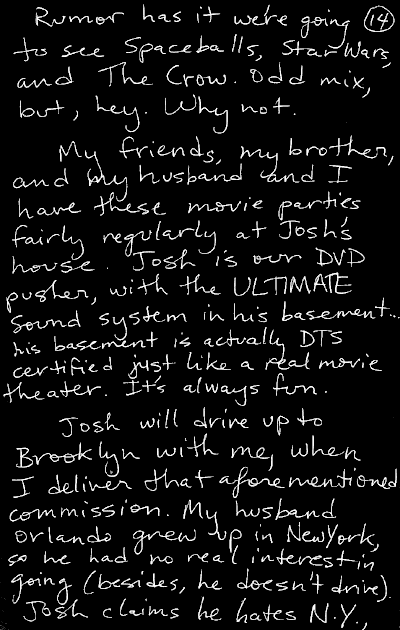 Rumor has it we're going (14)
to see Spaceballs, Star Wars,
and The Crow. Odd mix,
but, hey. Why not.
My friends, my brother,
and my husband and I
have these movie parties
fairly regularly at Josh's
house. Josh is our DVD
pusher, with the ULTIMATE
sound system in his basement...
his basement is actually DTS
certified just like a real movie
theater. It's always fun.
Josh will drive up to
Brooklyn with me, when
I deliver that aforementioned
commission. My husband
Orlando grew up in New York,
so he had no real interest in
going (besides, he doesn't drive).
Josh claims he hates N.Y.,